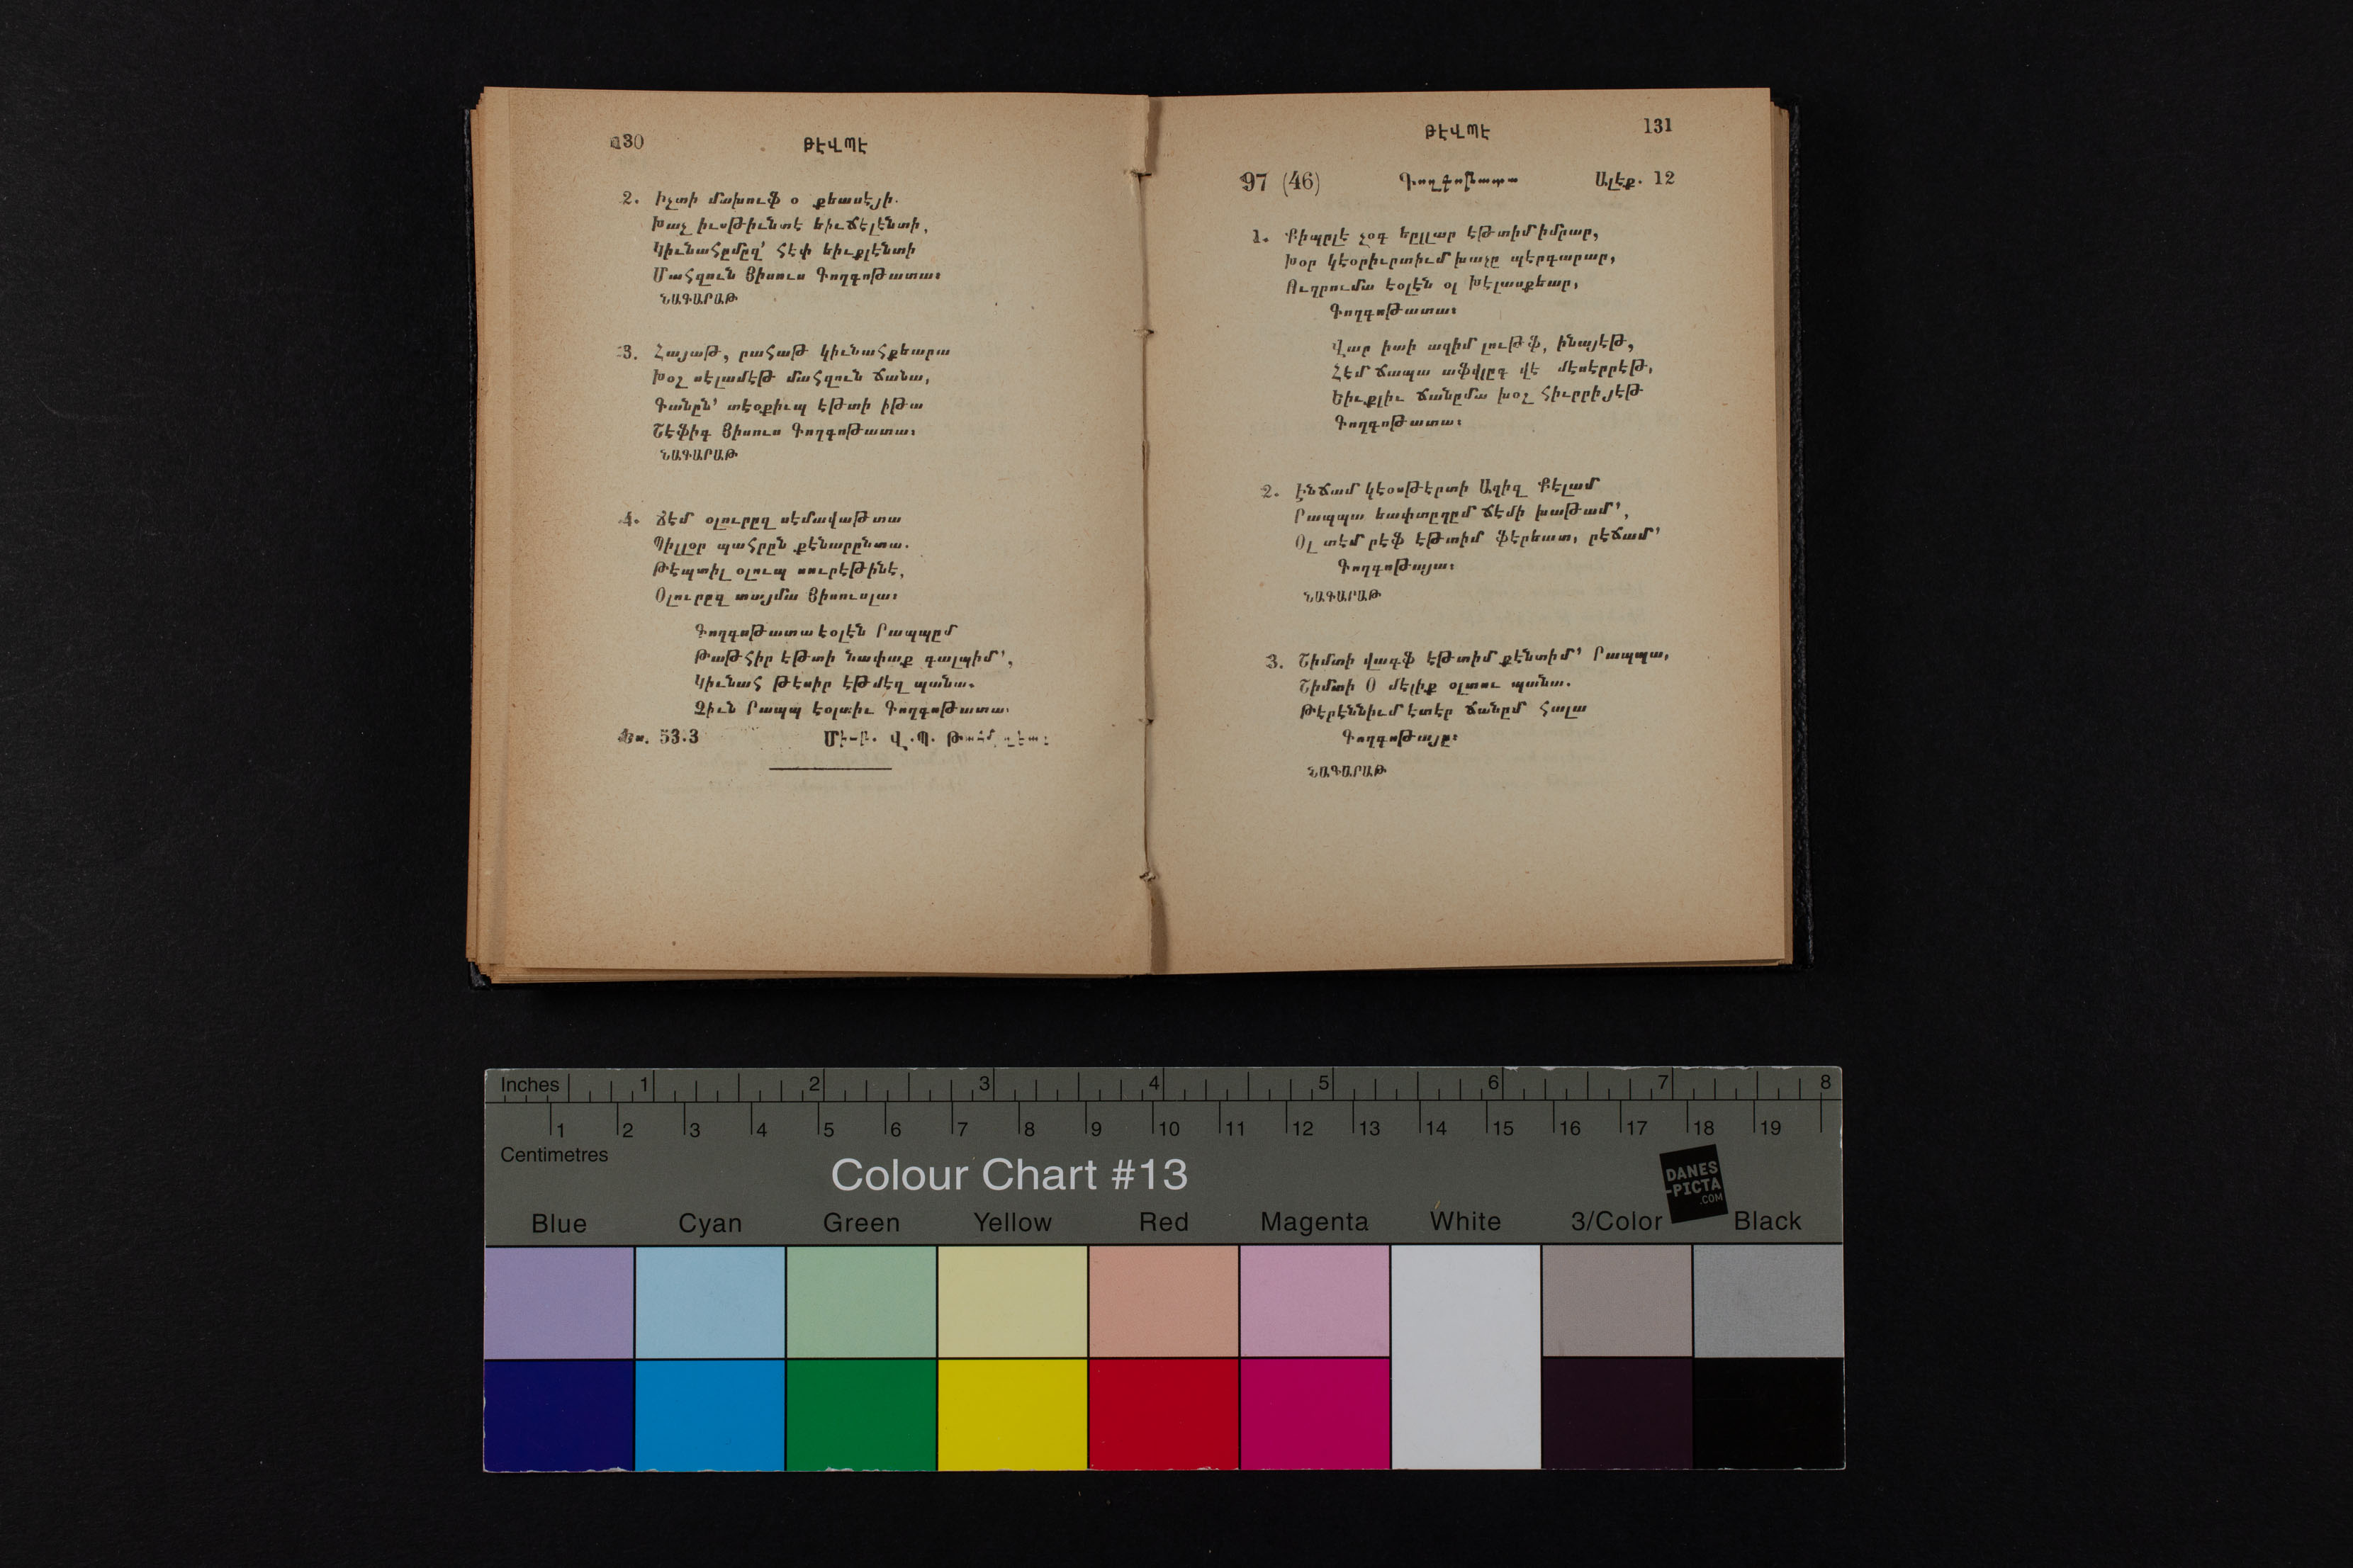 130
ԹԷՎՊԷ
2. Իչտի մախուֆ օ քեասէյի.
Խաչ իւսթիւնտէ եիւճէլէնտի,
Կիւնահըմըզ՚ հէփ եիւքլէնտի
Մահզուն Յիսուս Գողգոթատա։
ՆԱԳԱՐԱԹ
3. Հայաթ, րահաթ կիւնահքեարա
Խօշ սէլամէթ մահզուն ճանա,
Գանըն՚ տէօքիւպ էթտի իթա
Շէֆիգ Յիսուս Գողգոթատա։
ՆԱԳԱՐԱԹ
4. Ճէմ օլուրըզ սէմավաթտա
Պիլլօր պահրըն քէնարընտա.
Թէպտիլ օլուպ սուրէթինէ,
Օլուրըզ տայմա Յիսուսլա։
Գողգոթատա էօլէն Րապպըմ
Թաթհիր էթտի նափաք գալպիմ՚,
Կիւնահ թէսիր էթմէզ պանա.
Զիւն Րապպ էօլտիւ Գողգոթատա։
Ես. 53.3
ԹԷՎՊԷ
131
97 (46) Գողգոթատա Ալէք. 12
1. Քիպրլէ չօգ եըլլար էթտիմ իմրար,
Խօր կէօրիւրտիւմ խաչը պէրգարար,
Ուղրումա էօլէն օլ Խէլասքեար,
Գողգոթատա։
Վար իտի ազիմ լութֆ, ինայէթ,
Հէմ ճապա աֆվլըգ վէ մէսէրրէթ,
Եիւքլիւ ճանըմա խօշ հիւրրիյէթ
Գողգոթատա։
2. Էնճամ կէօսթէրտի Ազիզ Քէլամ
Րապպա եափտըղըմ ճէմի խաթամ՚,
Օլ տէմ րէֆ էթտիմ ֆէրեատ, րէճամ՚
Գողգոթայա։
ՆԱԳԱՐԱԹ
3. Շիմտի վագֆ էթտիմ քէնտիմ՚ Րապպա,
Շիմտի Օ մէլիք օլտու պանա.
Թէրէննիւմ էտէր ճանըմ հալա
Գողգոթայը։
ՆԱԳԱՐԱԹ
Inches 1 2 3 4 5 6 7 8
1 2 3 4 5 6 7 8 9 10 11 12 13 14 15 16 17 18 19
Centimetres
Colour Chart #13
DANES
-PICTA
.COM
Blue Cyan Green Yellow Red Magenta White 3/Color Black